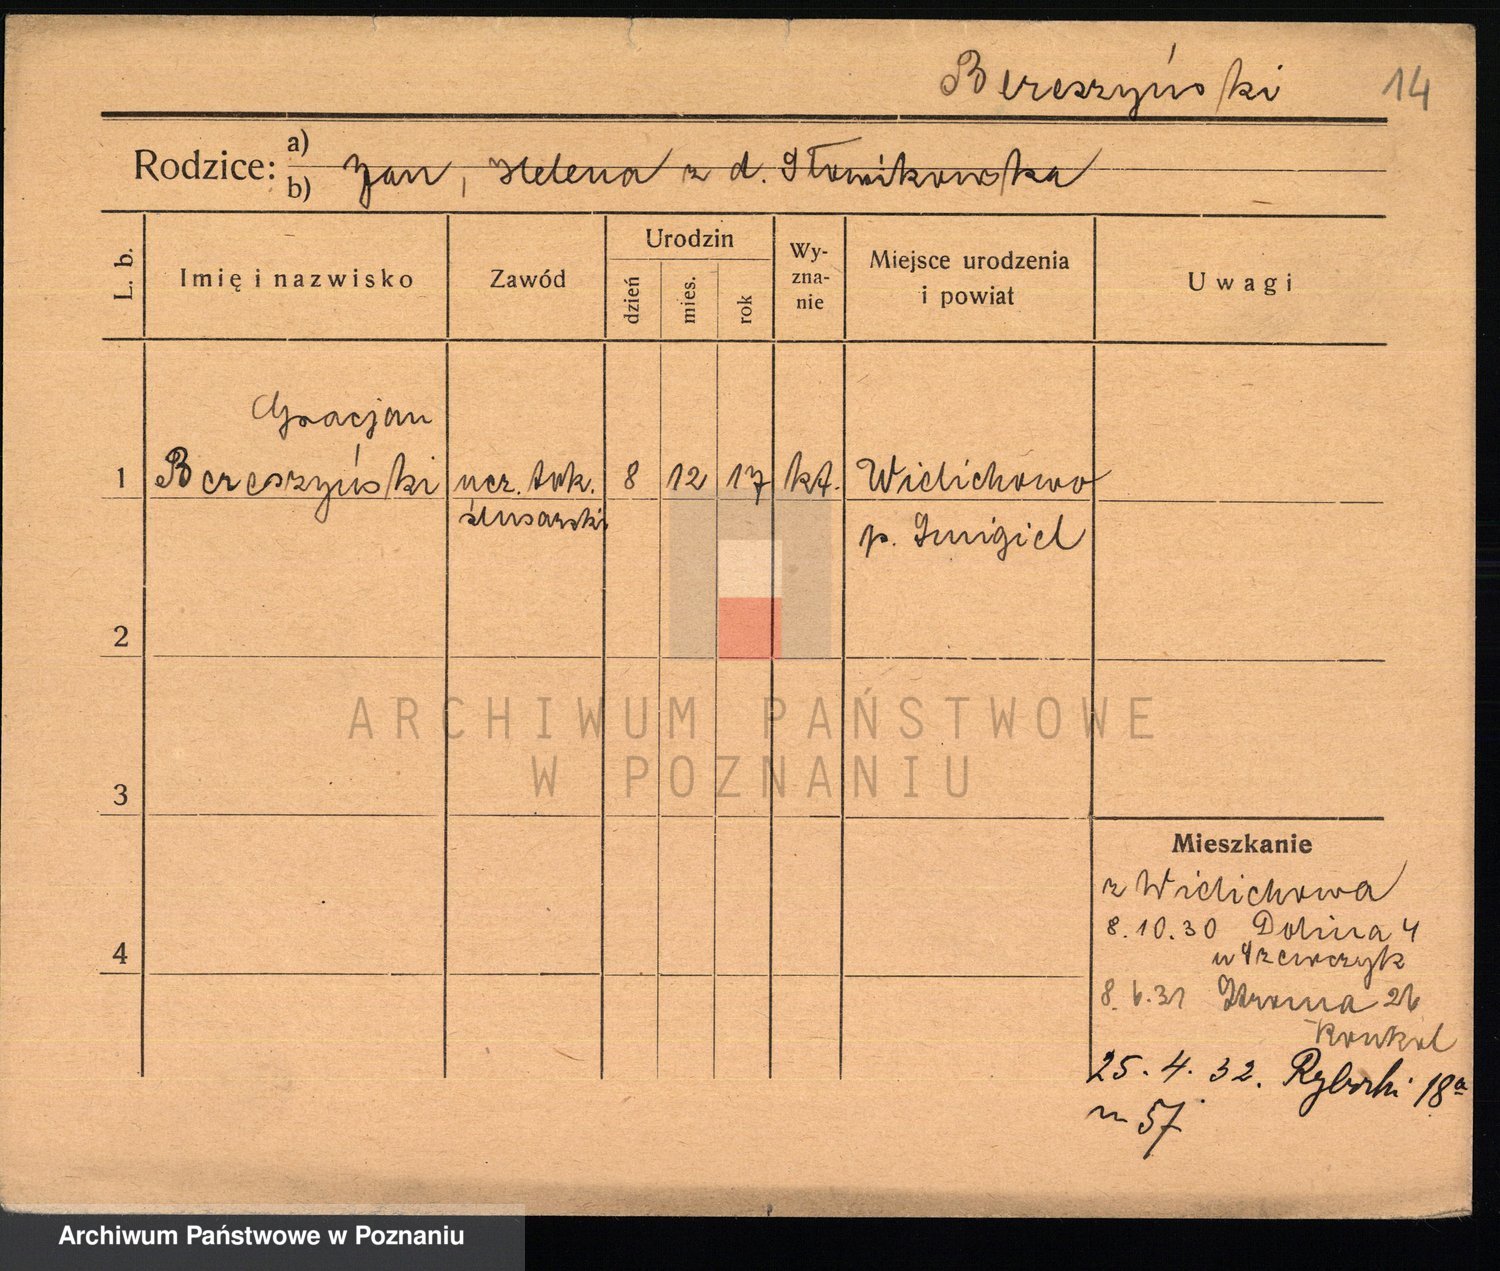 Bereszyński 14
Rodzice: a)
b) Jan, Helena z d. Słowikowska
L. b.
Imię i nazwisko
Zawód
Urodzin
dzień
mies.
rok
Wy-
zna-
nie
Miejsce urodzenia
i powiat
Uwagi
Gracjan
1 Bereszyński ucz. tok. 8 12 17 kt. Wielichowo
ślusarski p. Śmigiel
2
ARCHIWUM PAŃSTWOWE
W POZNANIU
3
Mieszkanie
z Wielichowa
8.10.30 Dolina 4
4
u Szewczyk
8.6.31 Stroma 26
Konkol
25.4.32. Rybaki 18a
m 57
Archiwum Państwowe w Poznaniu